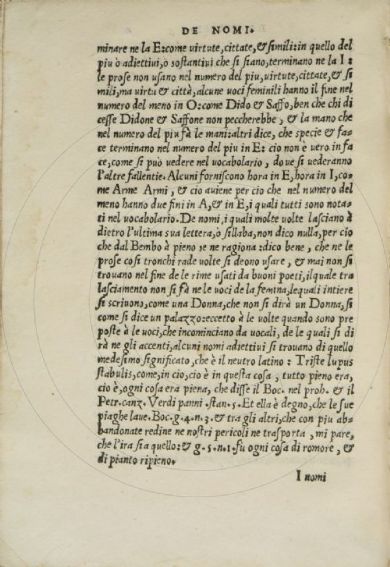 DE NOMI.
minare ne la E: come virtute, cittate, & simili: in quello del
piu ò adiettiui, o sostantiui che si siano, terminano ne la I:
le prose non usano nel numero del piu, virtute, cittate, & si
mili, ma virtu & città, alcune uoci feminili hanno il fine nel
numero del meno in O: come Dido & Saffo, ben che chi di
cesse Didone & Saffone non peccherebbe, & la mano che
nel numero del piu fà le mani: altri dice, che specie & fac
ce terminano nel numero del piu in E: e cio non e uero in fa
ce, come si può vedere nel vocabolario, doue si uederanno
l'altre fallentie. Alcuni forniscono hora in E, hora in I, co
me Arme Armi, & cio auiene per cio che nel numero del
meno hanno due fini in A, & in E, i quali tutti sono nota-
ti nel vocabolario. De nomi, i quali molte volte lasciano à
dietro l'ultima sua lettera, ò sillaba, non dico nulla, per cio
che dal Bembo à pieno se ne ragiona: dico bene, che ne le
prose cosi tronchi rade uolte si deono usare, & mai non si
trouano nel fine de le rime usati da buoni poeti, il quale tra
lasciamento non si fà ne le uoci de la femina, lequali intiere
si scriuono, come una Donna, che non si dirà un Donna, si
come si dice un palazzo: eccetto à le uolte quando sono pre
poste à le uoci, che incominciano da uocali, de le quali si di
rà ne gli accenti, alcuni nomi adiettiui si trouano di quello
medesimo significato, che è il neutro latino: Triste lupus
stabulis, come, in cio, cio è in questa cosa, tutto pieno era,
cio è, ogni cosa era piena, che disse il Boc. nel proh. & il
Petr. canz. Verdi panni. stan. 5. Et ella è degno, che le sue
piaghe laue. Boc. g. 4. n. 3. & tra gli altri, che con piu ab-
bandonate redine ne nostri pericoli ne trasporta, mi pare,
che l'ira sia quello: & g. 5. n. 1. fu ogni cosa di romore, &
di pianto ripieno.
I nomi